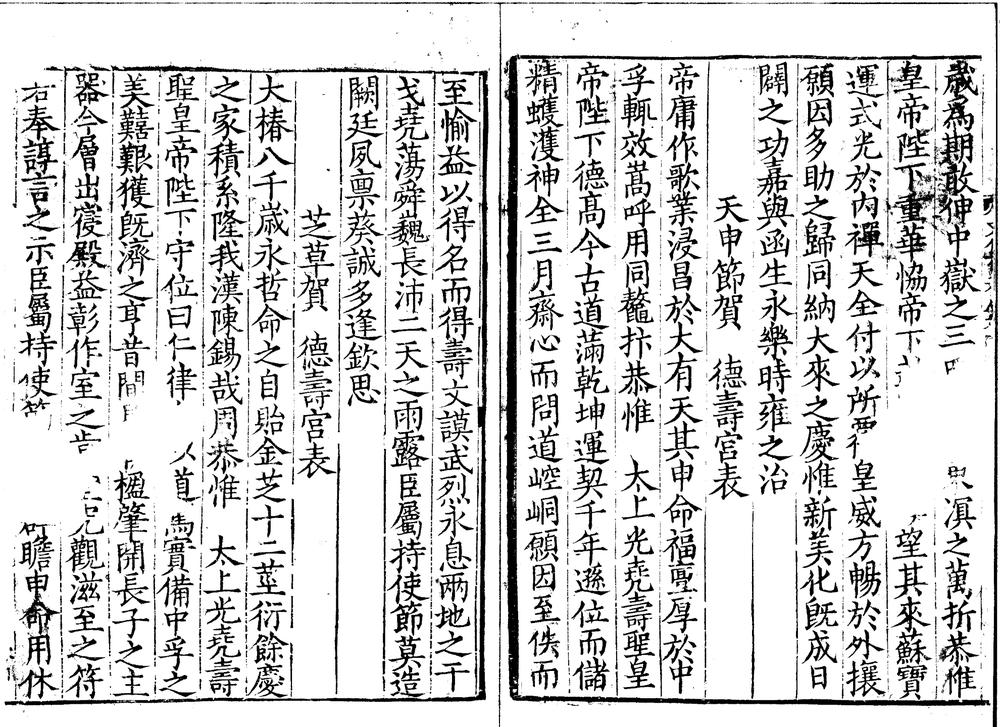 歲爲期敢伸中嶽之三
滇之萬折恭惟
皇帝陛下重華恊帝下
望其來蘇寶
運式光於內禪天全付以所
皇威方暢於外攘
願因多助之歸同納大來之慶惟新美化旣成日
闢之功嘉與函生永樂時雍之治
天申節賀 德壽宮表
帝庸作歌業浸昌於大有天其申命福亟厚於中
孚輒效嵩呼用同鼇抃恭惟 太上光堯壽聖皇
帝陛下德髙今古道滿乾坤運契千年遜位而儲
精蠖濩神全三月齋心而問道崆峒願因至佚而
至愉益以得名而得壽文謨武烈永息兩地之干
戈堯蕩舜巍長沛二天之雨露臣屬持使節莫造
闕廷夙稟葵誠多逢欽思
芝草賀 德壽宮表
大椿八千歲永哲命之自貽金芝十二莖衍餘慶
之家積系隆我漢陳錫哉周恭惟 太上光堯壽
聖皇帝陛下守位曰仁律
道
寶備中孚之
美囏艱獲旣濟之亨昔間
楹肇開長子之主
器今層出寢殿益彰作室之
觀滋至之符
右奉諄言之示臣屬持使
瞻申命用休